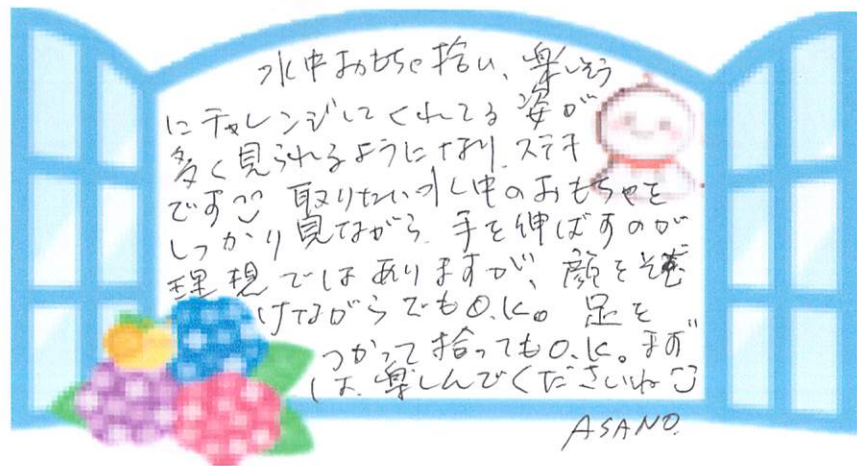 水中おもちゃ拾い、楽しそう
にチャレンジしてくれてる姿が
多く見られるようになり、ステキ
です 取りたい水中のおもちゃを
しっかり見ながら、手を伸ばすのが
理想ではありますが、顔をそむ
けながらでもO.K。足を
つかって拾ってもO.K。まず
は、楽しんでくださいね
ASANO.